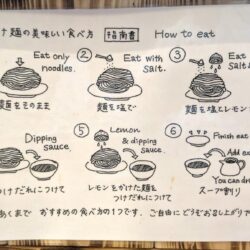 け麺の美味しい食べ方 指南書 How to eat
Eat only noodles.
麺をそのまま
② Eat with Salt.
麺を塩で
③ Eat Salt
麺を塩とレモン
Dipping sauce.
つけだれにつけて
⑤ Lemon & dipping sauce.
レモンをかけた麺をつけだれにつけて
⑥ Finish eat
Add
You can dr
スープ割り
あくまで おすすめの食べ方の1つです。ご自由にどうぞお召し上がり下